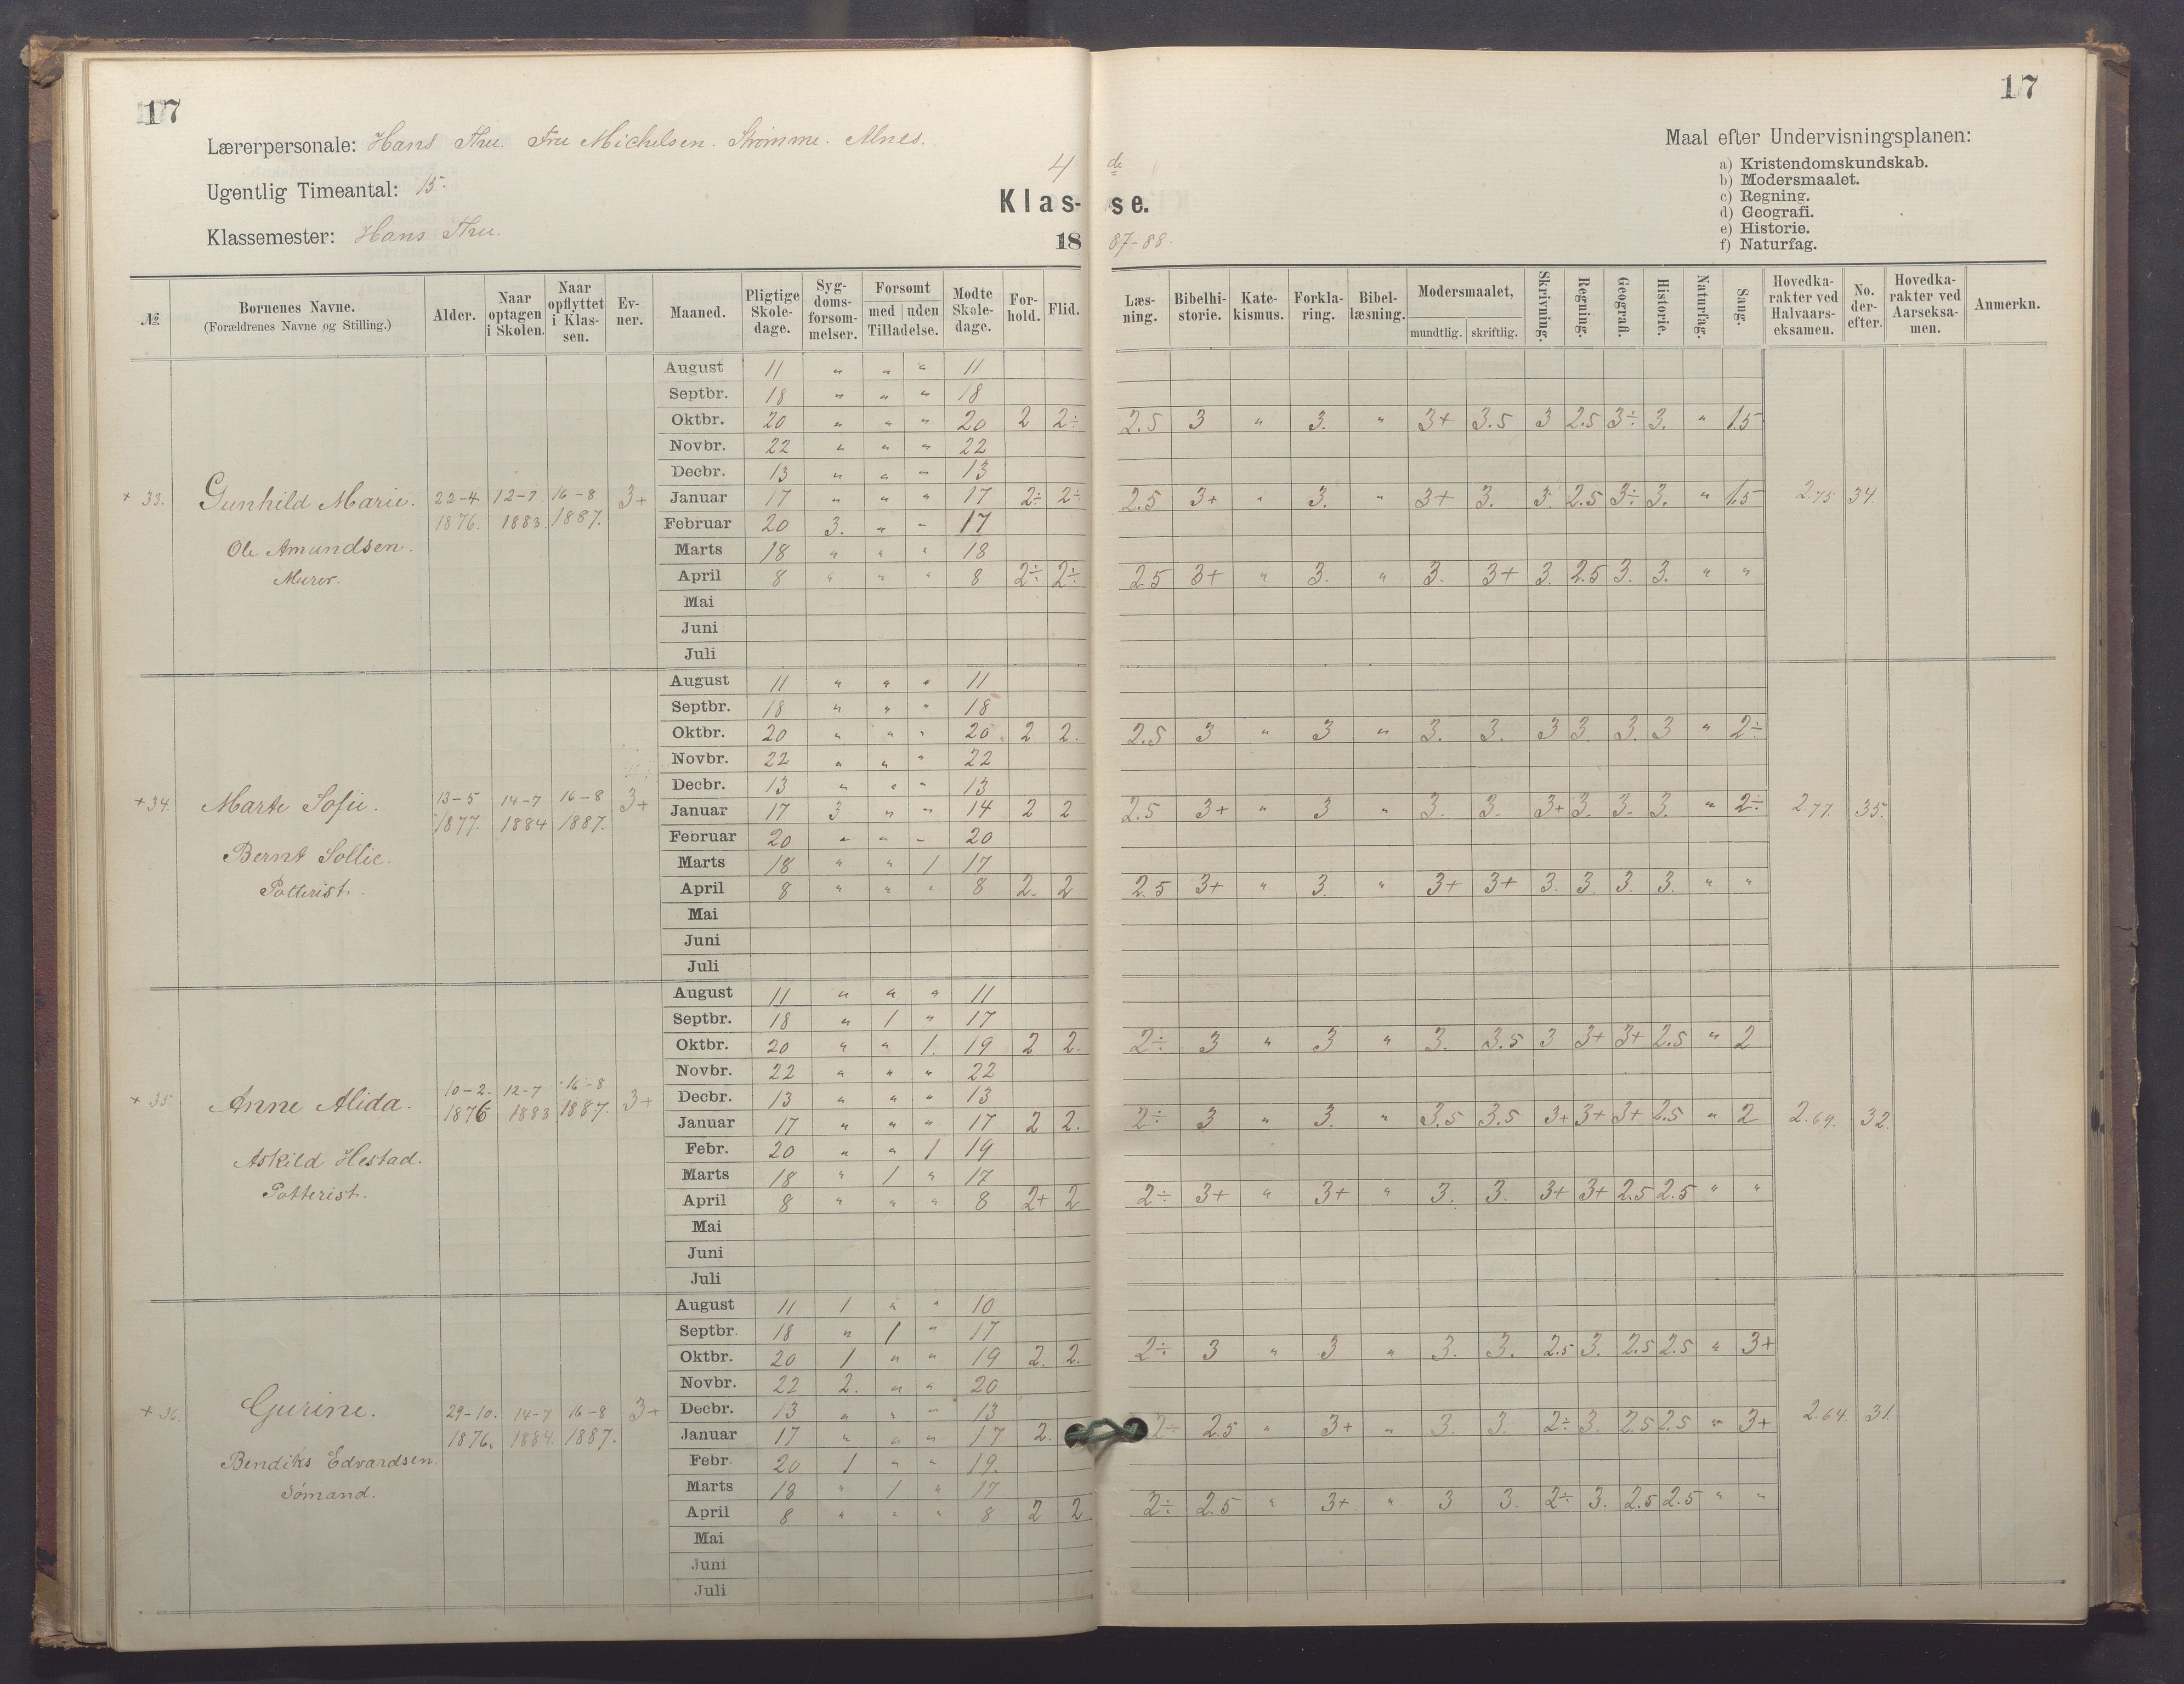 17
17
Lærerpersonale: Hans Thu. Fru Michelsen. Strømme. Alnes.
Ugentlig Timeantal: 15.
Klassemester: Hans Thu.
4 de
Klas- se.
18 87-88.
Maal efter Undervisningsplanen:
a) Kristendomskundskab.
b) Modersmaalet.
c) Regning.
d) Geografi.
e) Historie.
f) Naturfag.
№ Bornenes Navne. (Forældrenes Navne og Stilling.) Alder. Naar optagen i Skolen. Naar opflyttet i Klas- sen. Ev- ner. Maaned. Pligtige Skole- dage. Syg- doms- forsom- melser. Forsomt med uden Tilladelse. Modte Skole- dage. For- hold. Flid. Læs- ning. Bibelhi- storie. Kate- kismus. Forkla- ring. Bibel- læsning. Modersmaalet, mundtlig. skriftlig. Skrivning. Regning. Geografi. Historie. Naturfag. Sang. Hovedka- rakter ved Halvaars- eksamen. No. der- efter. Hovedka- rakter ved Aarseksa- men. Anmerkn.
+ 33. Gunhild Marie. 22-4 1876. 12-7. 1883. 16-8 1887. 3+
Ole Amundsen.
Murer.
August 11 " " " 11
Septbr. 18 " " " 18
Oktbr. 20 " " " 20 2 2÷ 2.5 3 " 3. " 3+ 3.5 3 2.5 3÷ 3. " 1.5
Novbr. 22 " " " 22
Decbr. 13 " " " 13
Januar 17 " " " 17 2÷ 2÷ 2.5 3+ " 3. " 3+ 3. 3. 2.5 3÷ 3. " 1.5 2.75 34.
Februar 20 3. " " 17
Marts 18 " " " 18
April 8 " " " 8 2÷ 2÷ 2.5 3+ " 3. " 3. 3+ 3. 2.5 3. 3. " "
Mai
Juni
Juli
+ 34. Marte Sofie. 13-5 1877. 14-7 1884 16-8 1887. 3+
Bernt Sollie.
Potterist.
August 11 " " " 11
Septbr. 18 " " " 18
Oktbr. 20 " " " 20. 2 2. 2.5 3 " 3 " 3. 3. 3 3. 3. 3 " 2÷
Novbr. 22 " " " 22
Decbr. 13 " " " 13
Januar 17 3 " " 14 2 2 2.5 3+ " 3 " 3. 3. 3+ 3. 3. 3. " 2÷ 2.77. 35.
Februar 20 " " " 20
Marts 18 " " 1 17
April 8 " " " 8 2. 2 2.5 3+ " 3. " 3+ 3+ 3. 3. 3. 3. " "
Mai
Juni
Juli
+ 35 Anne Alida. 10-2. 1876 12-7 1883 16-8 1887. 3+
Askild Hestad.
Potterist.
August 11 " " " 11
Septbr. 18 " 1 " 17
Oktbr. 20 " " 1. 19 2 2. 2÷ 3 " 3 " 3. 3.5 3 3+ 3+ 2.5 " 2
Novbr. 22 " " " 22
Decbr. 13 " " " 13
Januar 17 " " " 17 2 2. 2÷ 3 " 3. " 3.5 3.5 3+ 3+ 3+ 2.5 " 2 2.69. 32.
Febr. 20 " " 1 19
Marts 18 " 1 " 17
April 8 " " " 8 2+ 2 2÷ 3+ " 3+ " 3. 3. 3+ 3+ 2.5 2.5 " "
Mai
Juni
Juli
+ 36. Gurine. 29-10. 1876. 14-7 1884. 16-8 1887. 3+
Bendiks Edvardsen.
Sømand.
August 11 1 " " 10
Septbr. 18 " 1 " 17
Oktbr. 20 1 " " 19 2. 2. 2÷ 3 " 3 " 3. 3. 2.5 3. 2.5 2.5 " 3+
Novbr. 22 2. " " 20
Decbr. 13 " " " 13
Januar 17 " " " 17 2. 2÷ 2.5 " 3+ " 3. 3. 2÷ 3. 2.5 2.5 " 3+ 2.64. 31.
Febr. 20 1 " " 19.
Marts 18 " 1 " 17
April 8 " " " 8 2 2 2÷ 2.5 " 3+ " 3 3. 2÷ 3. 2.5 2.5 " "
Mai
Juni
Juli